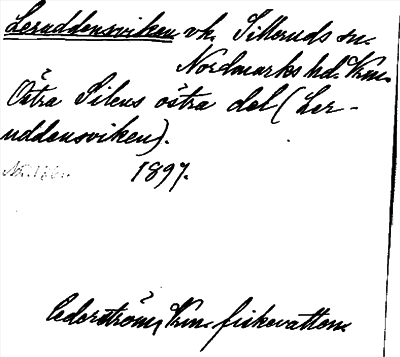 Leruddensviken vk. Silleruds sn.
Nordmarks hd. Vrm.
Östra Silens östra del (Ler-
uddensviken).
1897.
Cederström, Vrm. fiskevatten